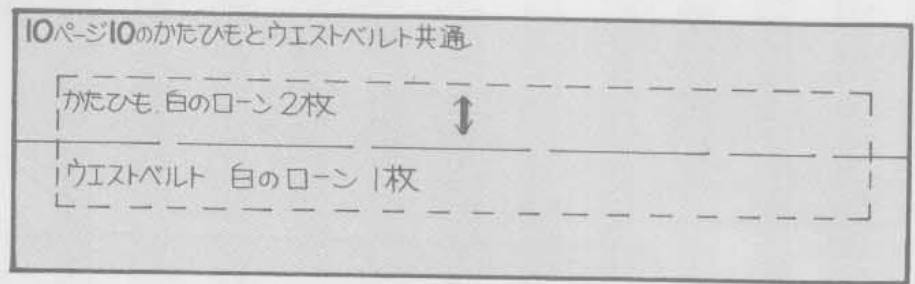 10ページ10のかたひもとウエストベルト共通
かたひも 白のローン 2枚
ウエストベルト 白のローン 1枚